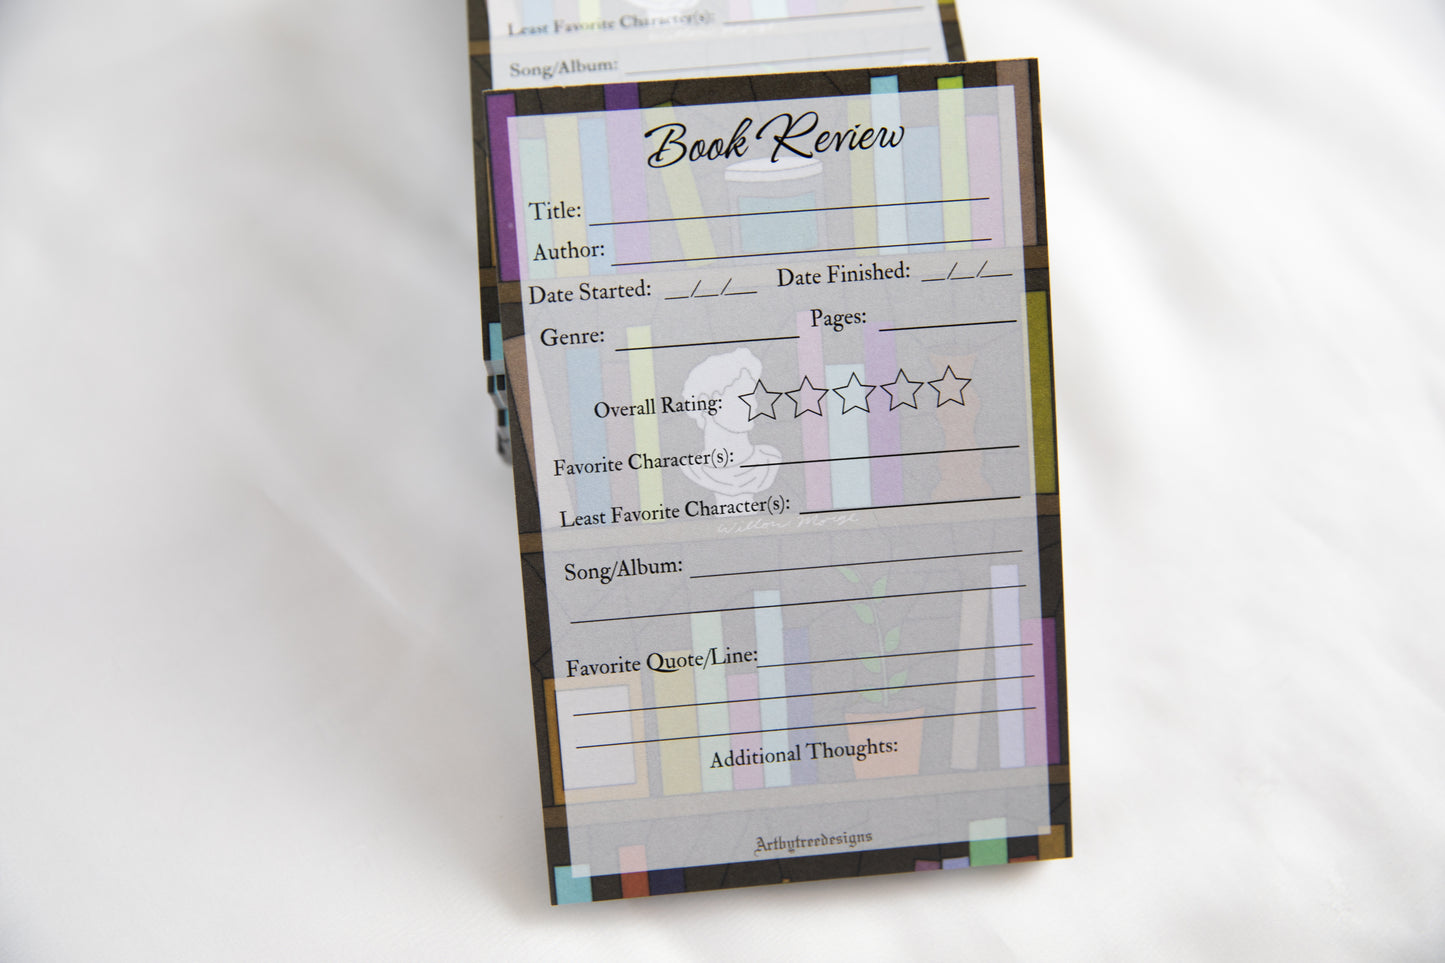 Least Favorite Character(s):
Song/Album:
Book Review
Title:
Author:
Date Started: __/__/__ Date Finished: __/__/__
Genre: Pages:
Overall Rating:
Favorite Character(s):
Least Favorite Character(s):
Willow Morse
Song/Album:
Favorite Quote/Line:
Additional Thoughts:
Artbytreedesigns